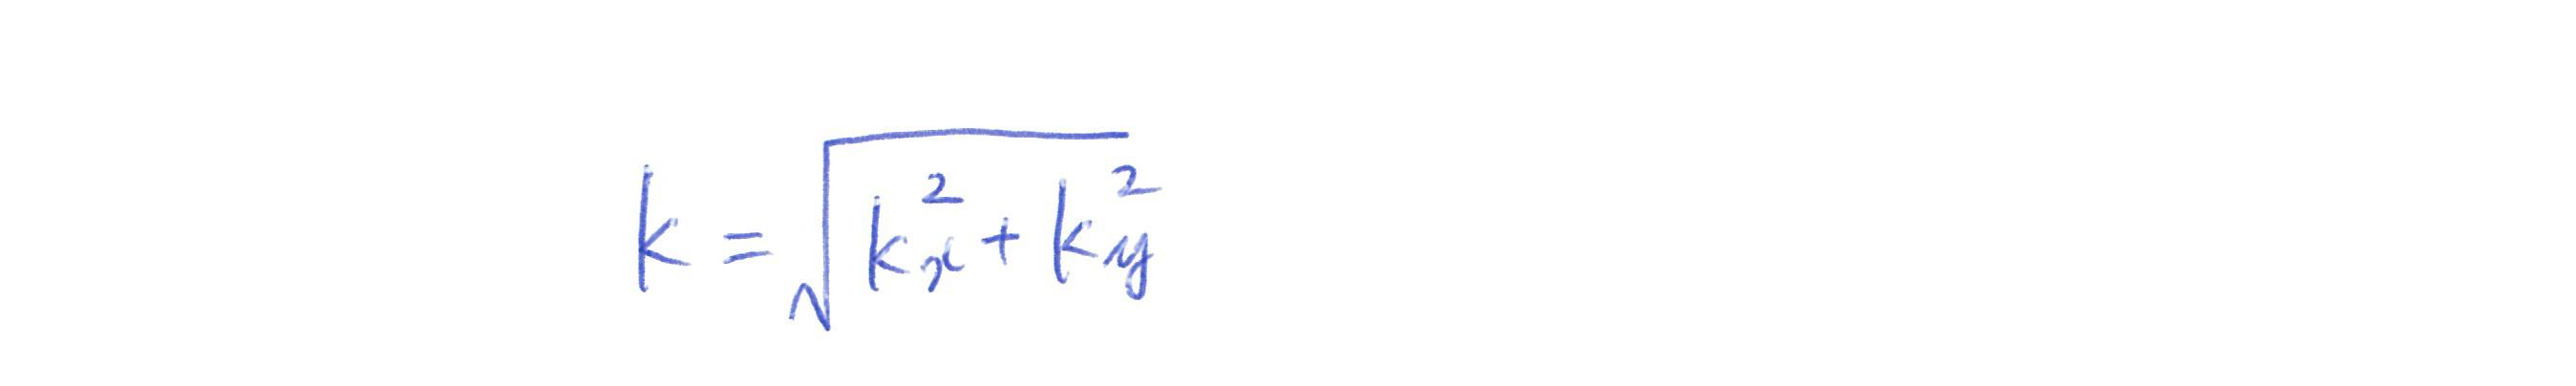 k = \sqrt{k_x^2 + k_y^2}